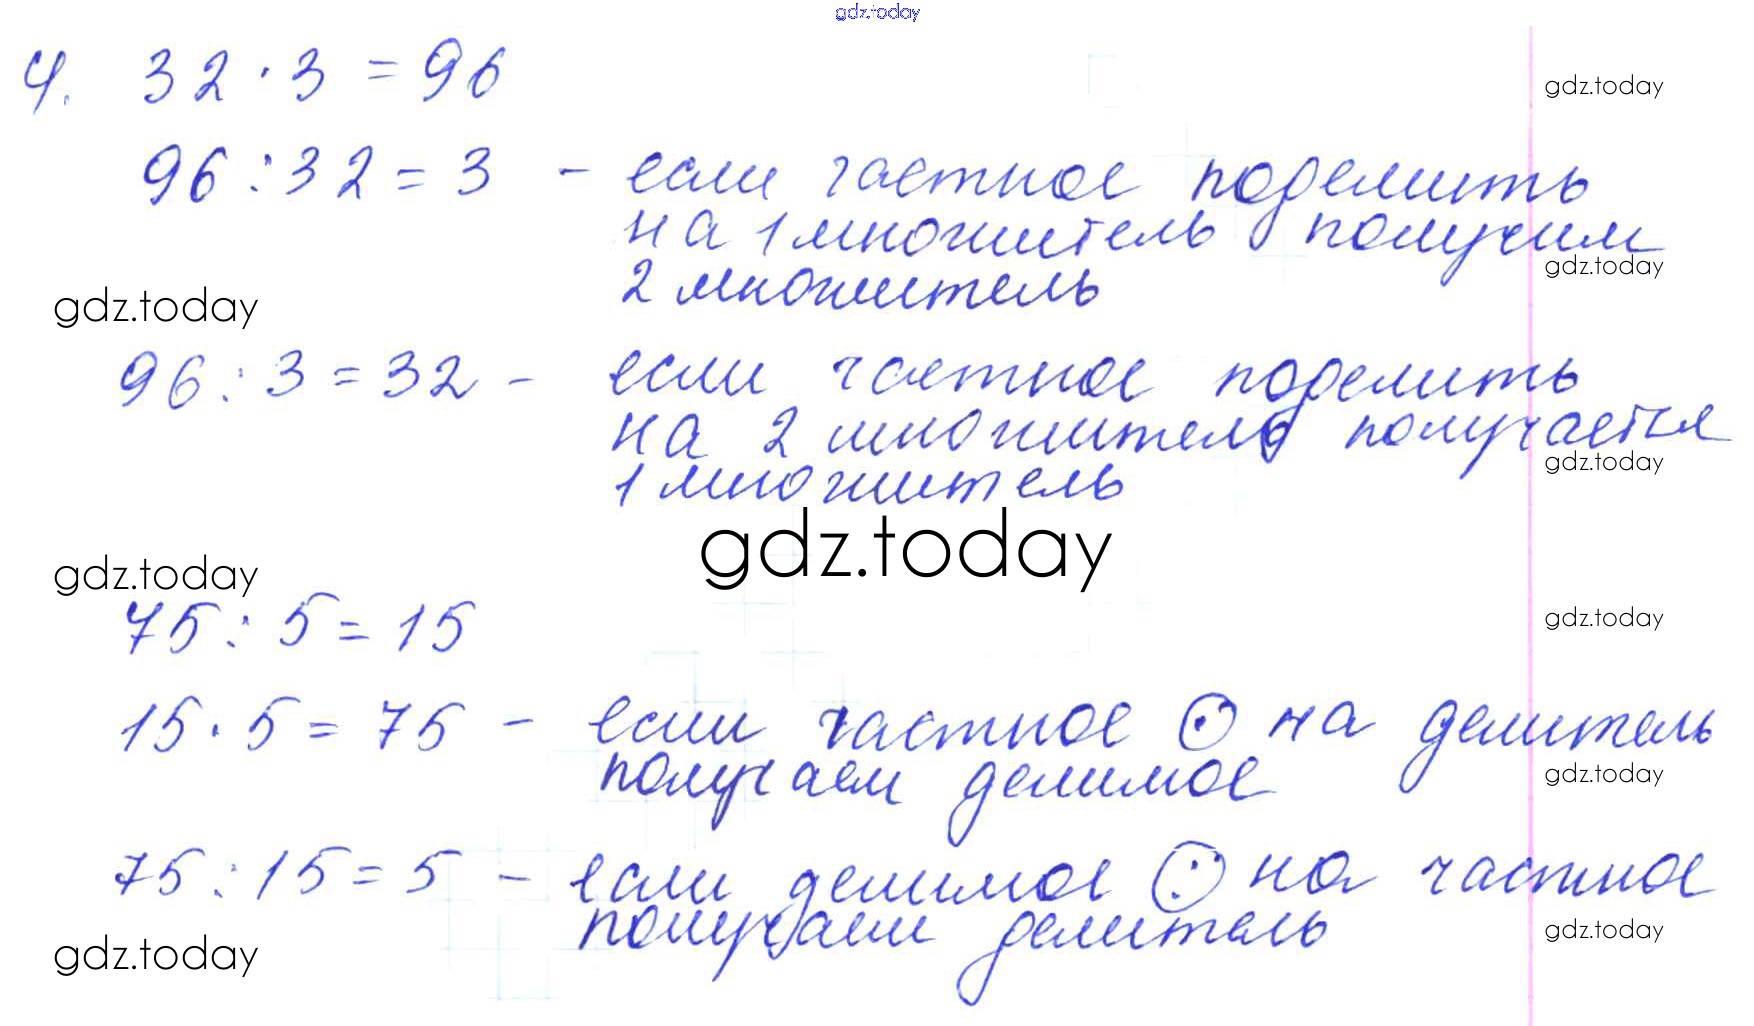 gdz.today
4. 32 · 3 = 96
gdz.today
96 : 32 = 3 - если частное поделить
на 1 множитель получим
gdz.today
2 множитель
gdz.today
96 : 3 = 32 - если частное поделить
на 2 множитель получается
gdz.today
1 множитель
gdz.today
gdz.today
75 : 5 = 15
gdz.today
15 · 5 = 75 - если частное · на делитель
получаем делимое
gdz.today
75 : 15 = 5 - если делимое : на частное
получаем делитель
gdz.today
gdz.today